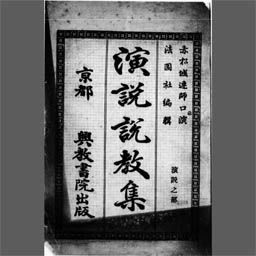 赤松城連師口演
法園社編輯
演説説教集
演説之部
京都 興教書院出版